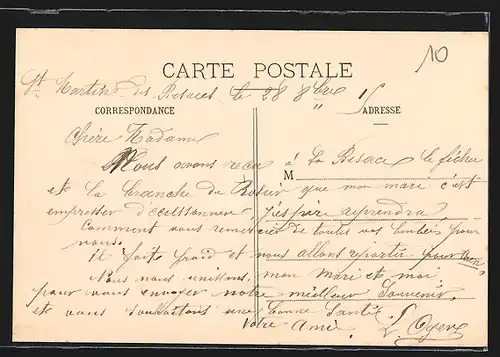 10
CARTE POSTALE
St Martin des Besaces le 28 8bre
CORRESPONDANCE
ADRESSE
Chère Madame
Nous avons reçu à La Besace le fichu
M
et la branche du Rosier que mon mari c'est
empresser d'écussonner, j'espère reprendra,
Comment vous remercier de toutes vos bontées pour
nous.
Il fait froid et nous allons repartir pour
Nous nous unissons, mon mari et moi
pour vous envoyer notre meilleur Souvenir,
et vous souhaitons une bonne Santé
Votre Amie L Oyer